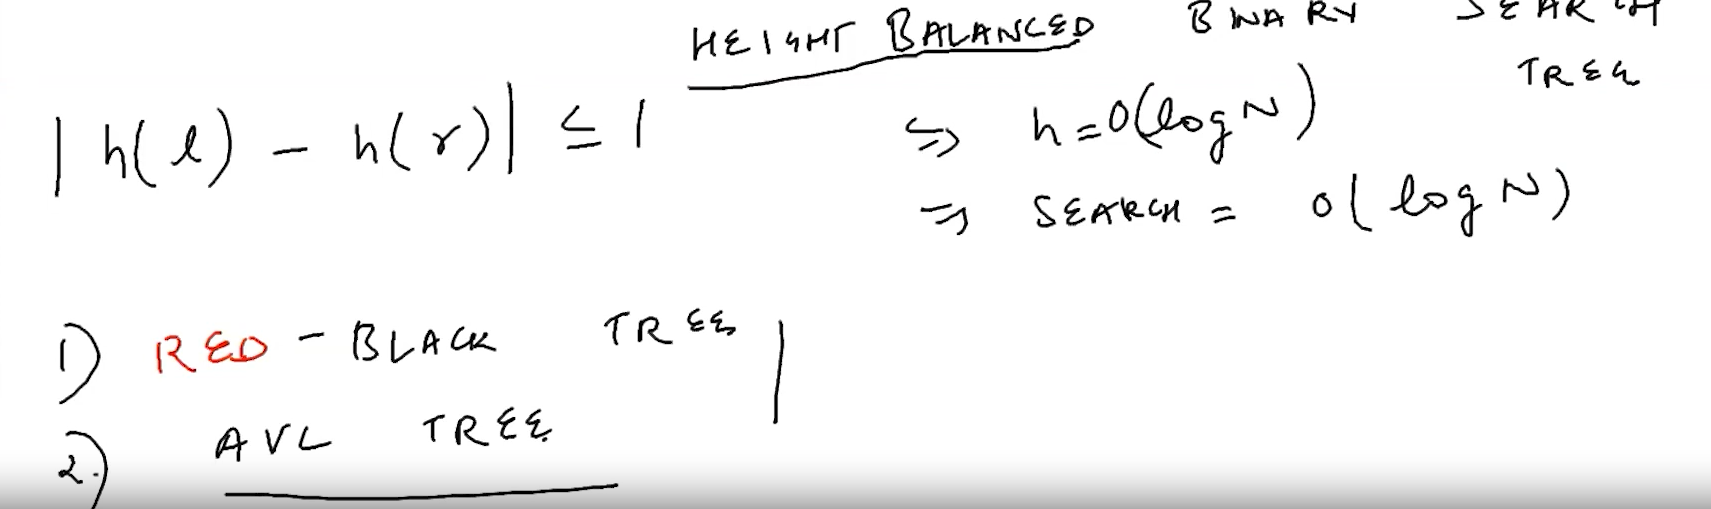 HEIGHT BALANCED BINARY SEARCH TREE
|h(l) - h(r)| ≤ 1
⇒ h = O(log N)
⇒ SEARCH = O(log N)
1) RED - BLACK TREE
2.) AVL TREE